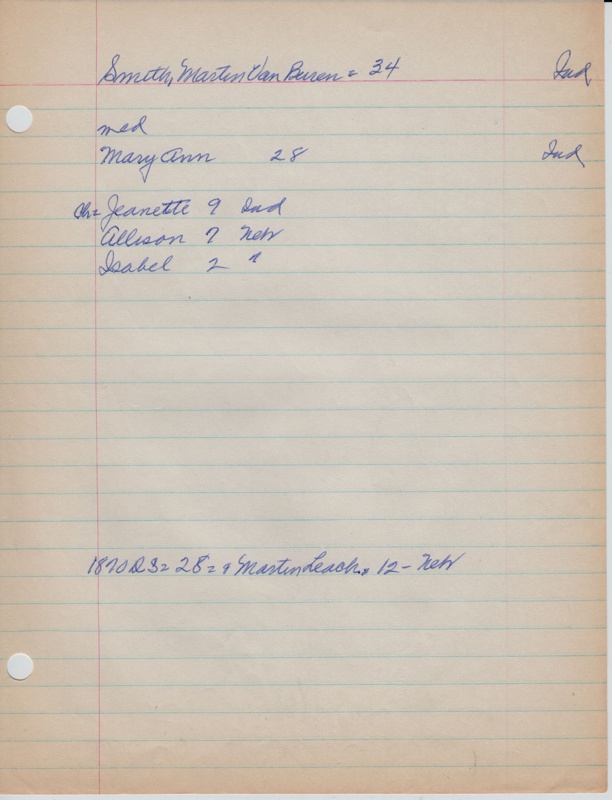 Smith, Martin Van Buren = 34 Ind
med
Mary Ann 28 Ind
Ch = Jeanette 9 Ind
Allison 7 Nebr
Isabel 2 "
1870 DS = 28 = & Martin Leach 12 - Nebr